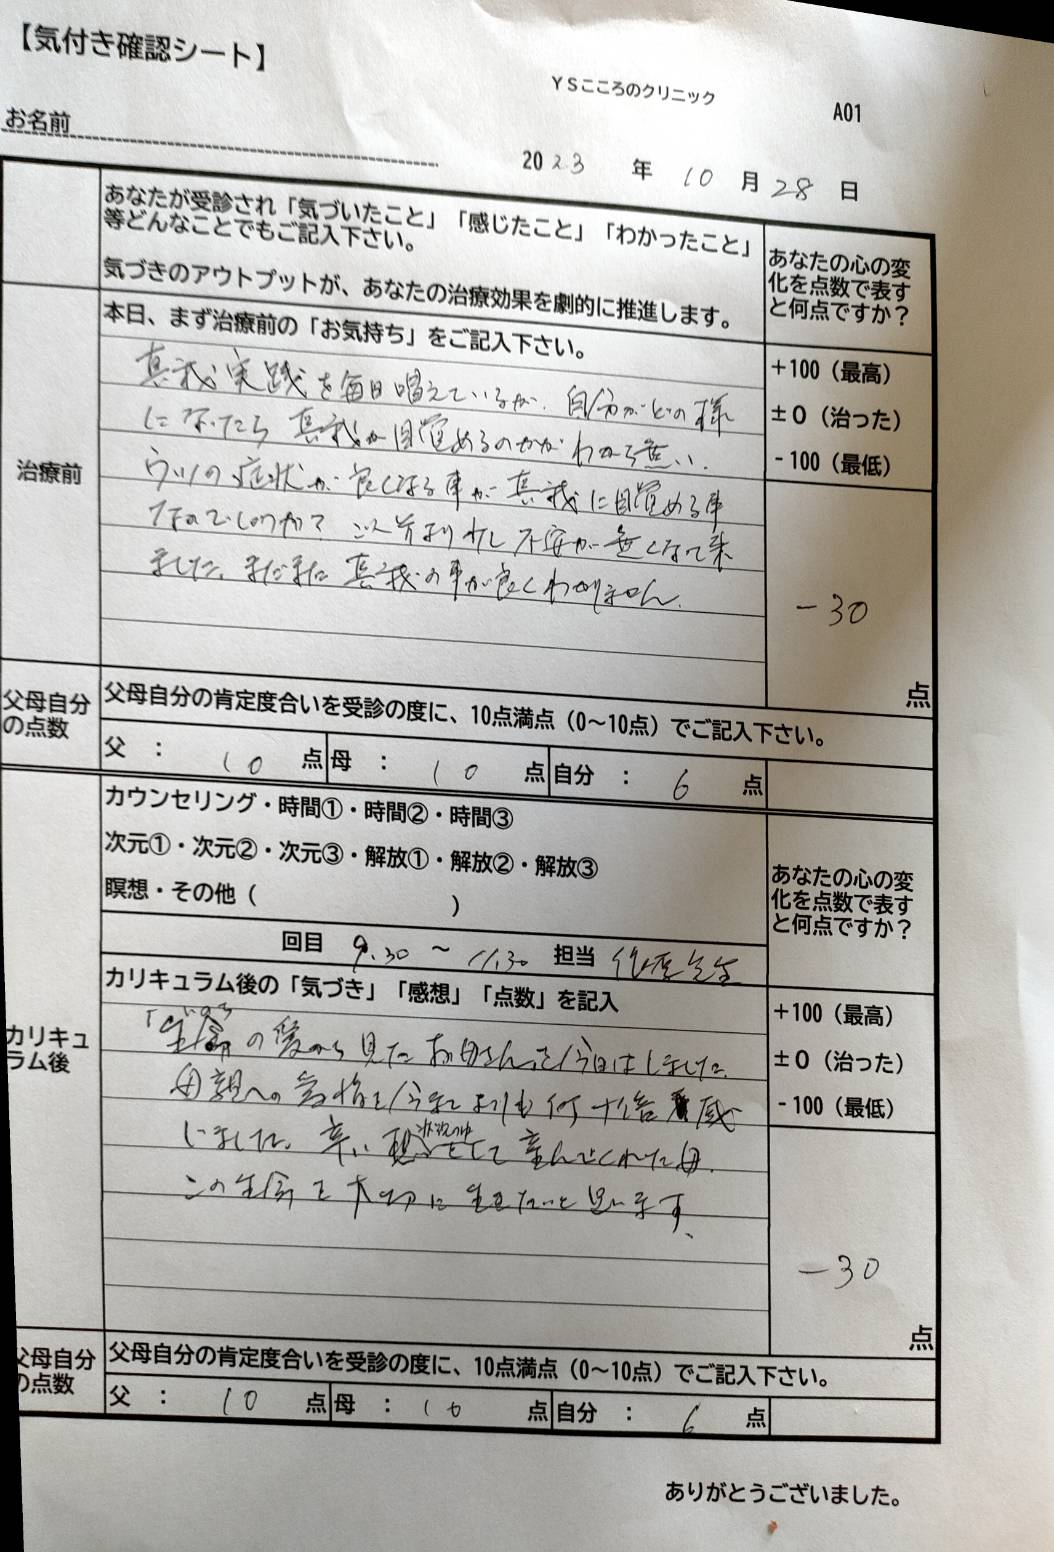 【気付き確認シート】
YSこころのクリニック
A01
お名前
2023 年 10 月 28 日
あなたが受診され「気づいたこと」「感じたこと」「わかったこと」
等どんなことでもご記入下さい。
気づきのアウトプットが、あなたの治療効果を劇的に推進します。
あなたの心の変
化を点数で表す
と何点ですか?
治療前
本日、まず治療前の「お気持ち」をご記入下さい。
真我実践を毎日唱えているが、自分がどの様
になったら真我が目覚めるのかがわから無い。
うつの症状が良くなる事が真我に目覚める事
なのでしょうか? 以前より少し不安が無くなって来
ました。まだまだ真我の事が良くわかりません。
+100(最高)
±0(治った)
-100(最低)
-30
点
父母自分
の点数
父母自分の肯定度合いを受診の度に、10点満点(0~10点)でご記入下さい。
父 : 10 点 母 : 10 点 自分 : 6 点
カウンセリング・時間①・時間②・時間③
次元①・次元②・次元③・解放①・解放②・解放③
瞑想・その他( )
回目 9.30 ~ 11.30 担当 先生
あなたの心の変
化を点数で表す
と何点ですか?
カリキュ
ラム後
カリキュラム後の「気づき」「感想」「点数」を記入
いのち
「生命の愛から見たお母さんを今日はしました。
母親への感情を今までよりも何十倍感
じました。辛い をして産んでくれた母、
この生命を大切に生きたいと思います。
+100(最高)
±0(治った)
-100(最低)
-30
点
父母自分
の点数
父母自分の肯定度合いを受診の度に、10点満点(0~10点)でご記入下さい。
父 : 10 点 母 : 10 点 自分 : 6 点
ありがとうございました。